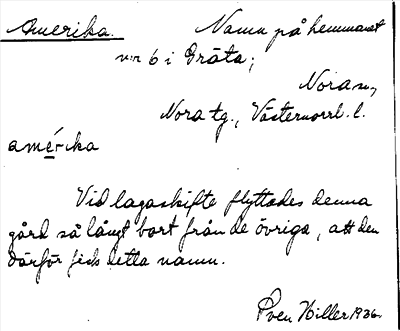 Amerika. Namn på hemmanet
n:r 6 i Gräta;
Nora sn,
Nora tg., Västernorrl. l.
amérika
Vid lagaskifte flyttades denna
gård så långt bort från de övriga, att den
därför fick detta namn.
Sven Hiller 1936.